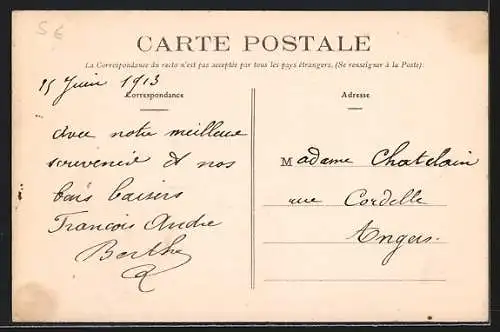 5 €
CARTE POSTALE
La Correspondance du recto n'est pas acceptée par tous les pays étrangers. (Se renseigner à la Poste).
15 Juin 1913
Correspondance
Adresse
avec notre meilleur
souvenir et nos
bons baisers
François André
Berthe
Madame Chatelain
rue Cordelle
Angers.